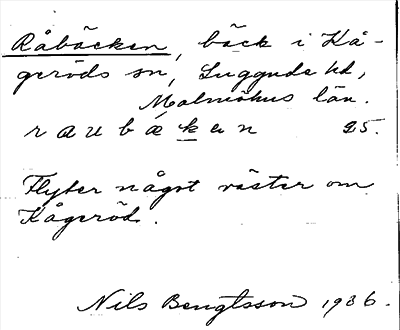 Råbäcken, bäck i Kå-
geröds sn, Luggude hd,
Malmöhus län.
raubækæn 25.
Flyter något väster om
Kågeröd.
Nils Bengtsson 1936.